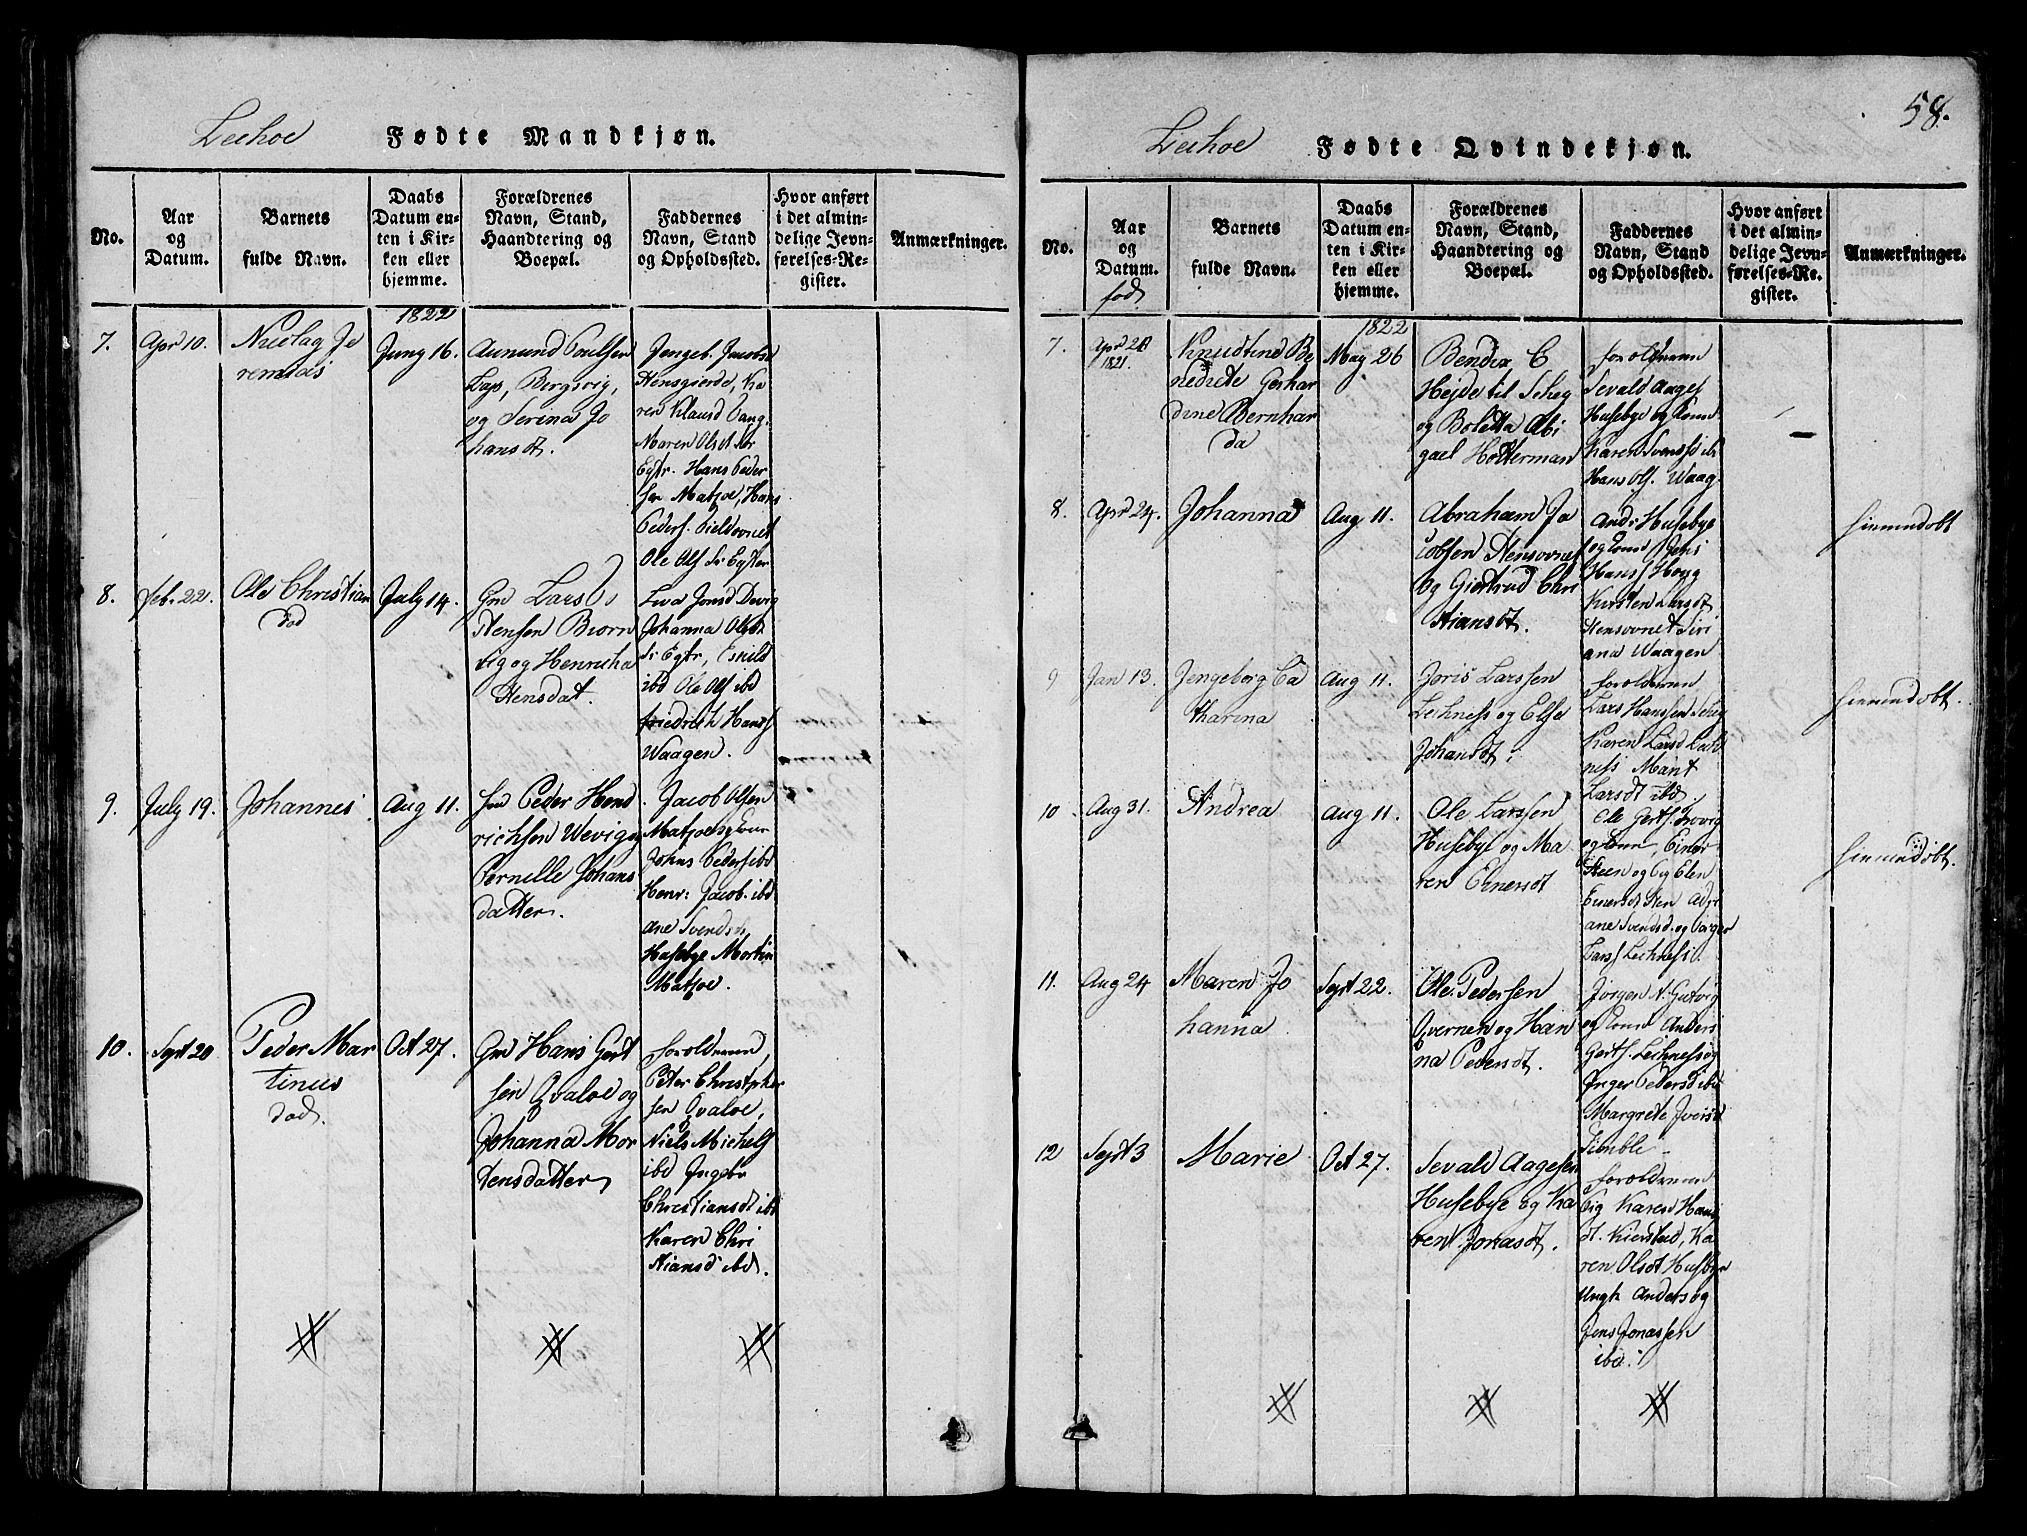 Leehoe Fødte Mandkjøn.
No.
Aar
og
Datum.
Barnets
fulde Navn.
Daabs
Datum en-
ten i Kir-
ken eller
hjemme.
Forældrenes
Navn, Stand,
Haandtering og
Boepæl.
Faddernes
Navn, Stand
og Opholdssted.
Hvor anført
i det almin-
delige Jevn-
førelses-Re-
gister.
Anmærkninger.
1822
7. Apr 10.
Nicolay Je
remias
Juny 16.
Aumund Poulsen
Bergsvig,
og Serina Jo
hansdt.
Jengeb. Jacobsd
Stensgierde, Ka
ren Klausd
Maren Olsdt
Hans Peder
sen Matzoe, Hans
Peders.
Ole Olss
8. Feb. 22.
Ole Christian
død
July 14.
Lars
Stensen Biorn
vig og Henricha
Stensdat.
Johanna Olsdt
ibd Ole Olss ibd
friedrich Hanss
Waagen.
9. July 19.
Johannes
Aug 11.
Peder Hend
richsen Wevig
Pernille Johans
datter.
Jacob Olsen
Matzoe
Johns Peders ibd
Henr: Jacob. ibd
ane Svends
Husebye Morten
Matzoe.
10. Sept 20
Peder Mar
tinus
død.
Oct 27.
Hans Gert
sen Qvaloe og
Johanna Mor
tensdatter
foroldrene,
Peter Christopher
sen Qvaloe,
Niels Michels
ibd Ingebr
Christiansdt ibd
Karen Chri
stiansd ibd.
58.
Leehoe Fødte Qvindekjøn.
No.
Aar
og
Datum.
fød
Barnets
fulde Navn.
Daabs
Datum en-
ten i Kir-
ken eller
hjemme.
Forældrenes
Navn, Stand,
Haandtering og
Boepæl.
Faddernes
Navn, Stand
og Opholdssted.
Hvor anført
i det almin-
delige Jevn-
førelses-Re-
gister.
Anmærkninger.
1822
7. Apr 28
1821.
Knudtina Be
nedicte Gerhar
dine Bernhar
da
May 26
Bendix C
Hejde til
og Boletta Abi
gael Holterman
foroldrene
Sevald Aages
Husebye og Konn
Karen Svensd ib
Hans Ols. Waag.
8. Apr 24.
Johanna
Aug 11.
Abraham Ja
cobsen Stensovnet
og Giertrud Chri
stiansdt.
Ands Husebye
og Konn Jens
Hanss Hoyg
Kirsten Larsdt
Stensovnet Siri
ana Waagen
hiemmedøbt
9 Jan 13.
Jengeborg Ca
tharina
Aug 11.
Joris Larssen
Lechness og Else
Johansdt.
foroldrene
Lars Hanssen
Karen Larsd Lech
ness Marit
Larsdt ibd.
hiemmedøbt.
10 Aug 31.
Andrea
Aug 11.
Ole Larssen
Husebye og Ma
ren Einersdt
Ole Gerts.
og Konn, Einer
Steen og Elen
Einersdt Sten Adri
ane Svendsd. og
Larss Lechness.
hiemmedøbt.
11. Aug 24
Maren Jo
hanna
Sept 22.
Ole Pedersen
og Han
na Pedersdt.
Jørgen A. Gutvig
og Konn Anders
Gertss. Lechness og
Inger Pedersd ibd
Margrete Iversd
12 Sept 3
Marie
Oct 27.
Sevald Aagesen
Husebye og Ka
ren Jonasdt.
foroldrene
Pig Karen Hans
dt. Kierstad, Ka
ren Olsdt Husebye
Ungk Anders og
Jens Jonassen
ibd.